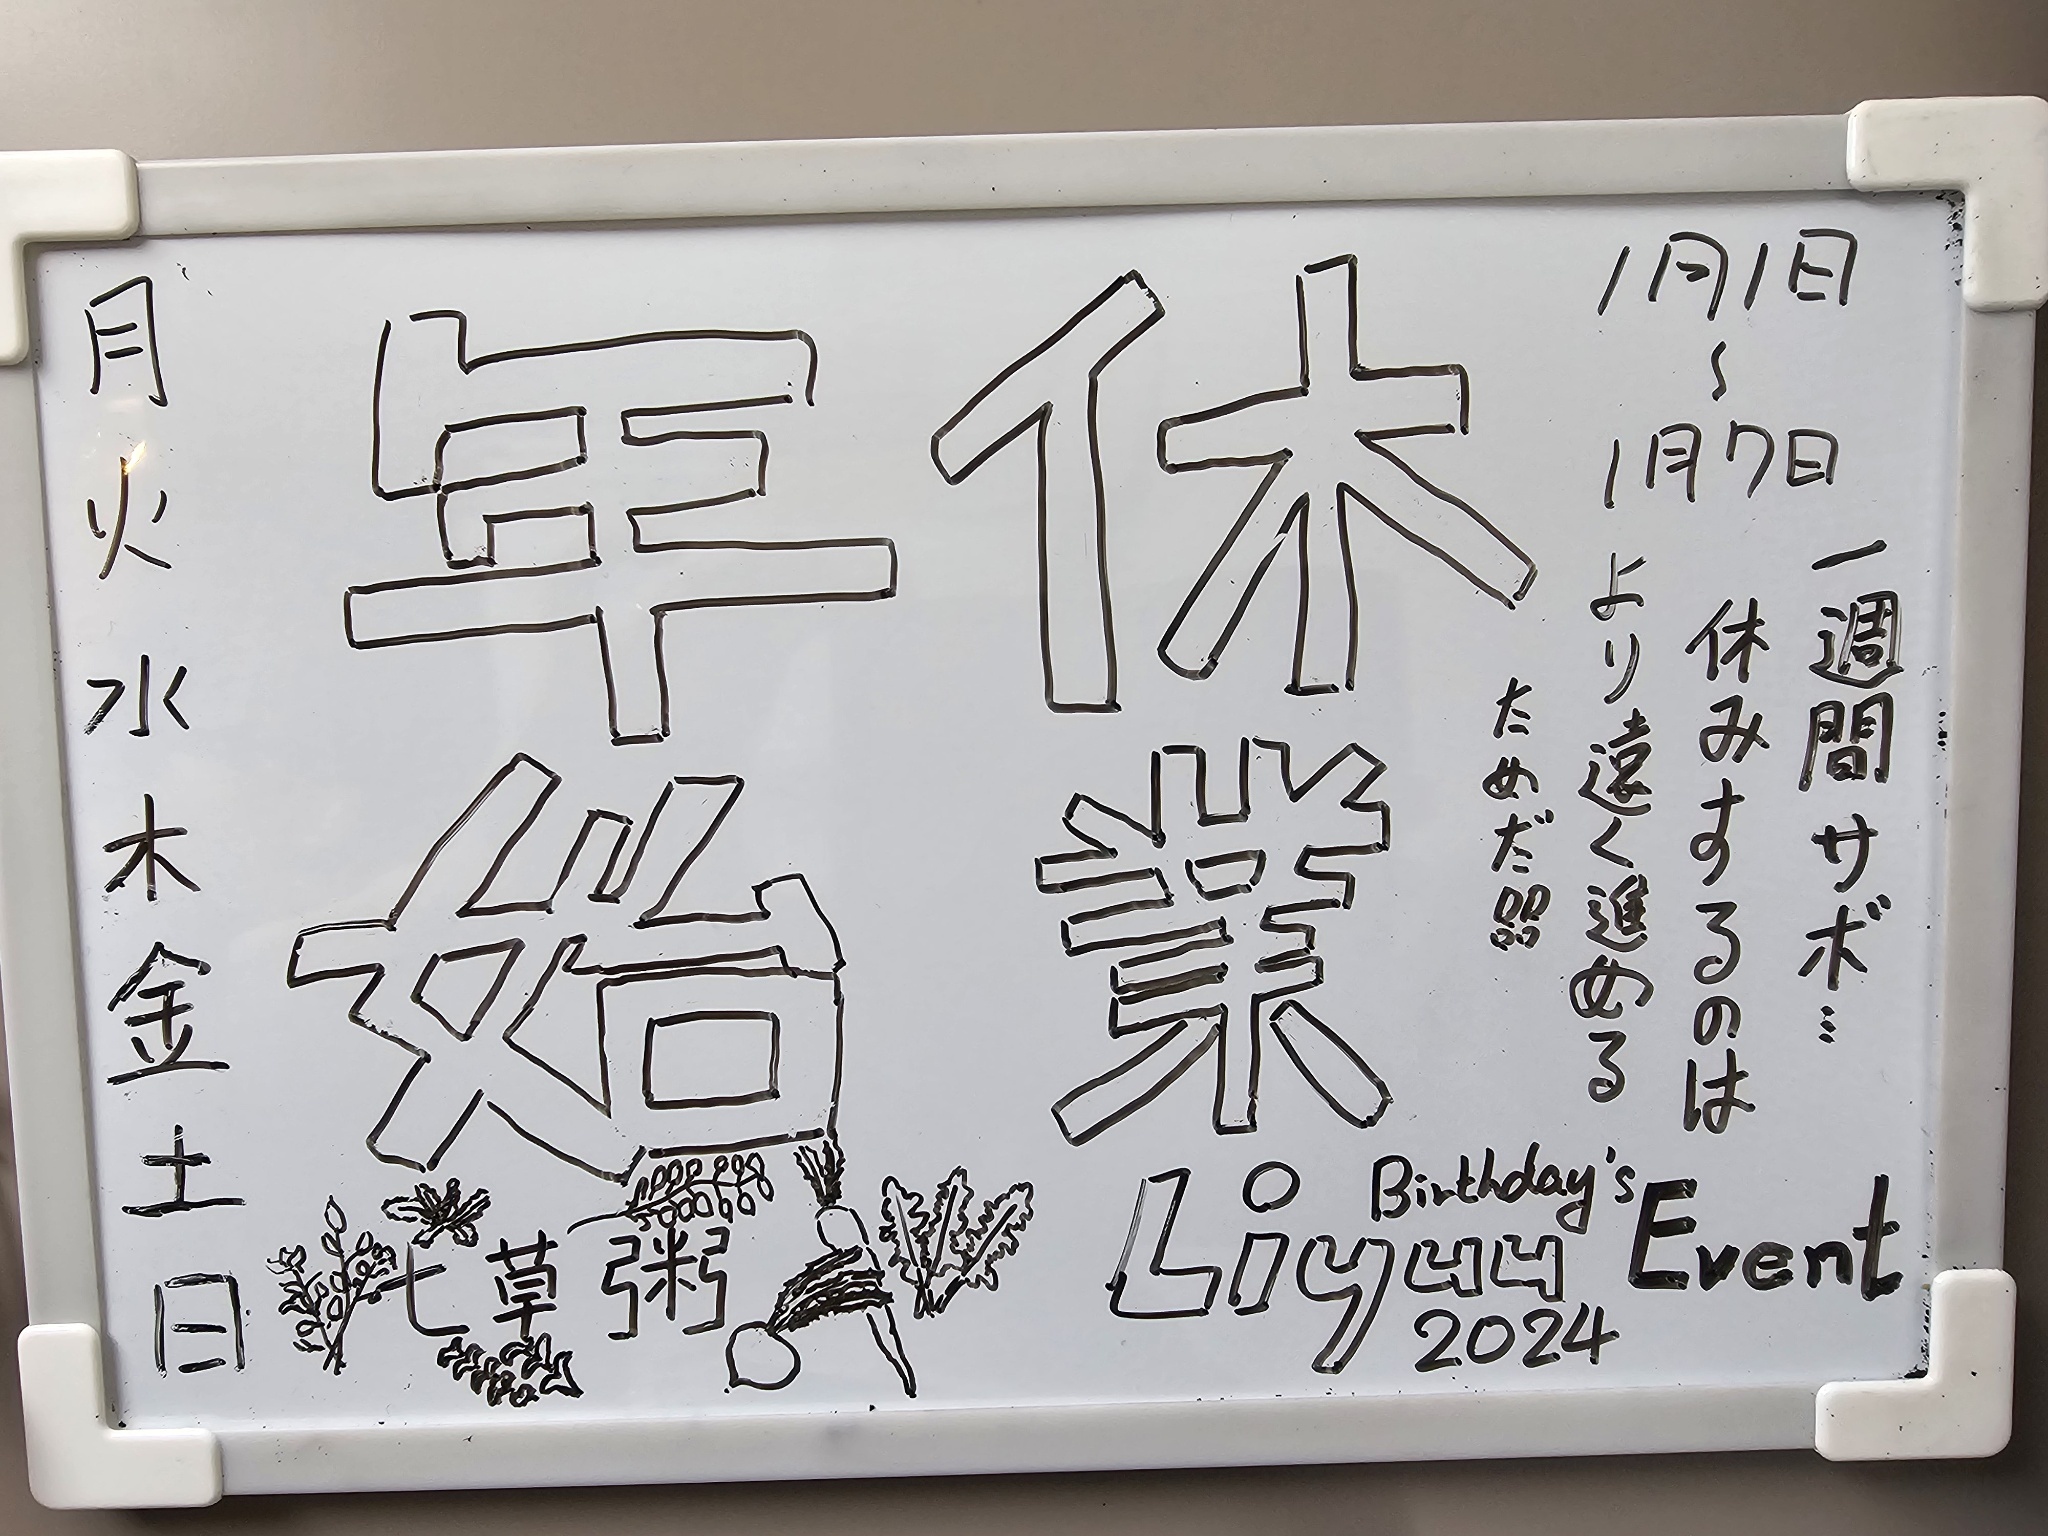 1月1日
～
1月7日
一週間サボ…
休みするのは
より遠く進める
ためだ!!!
年始
休業
月
火
水
木
金
土
日
七草粥
Liyuu Birthday's Event
2024